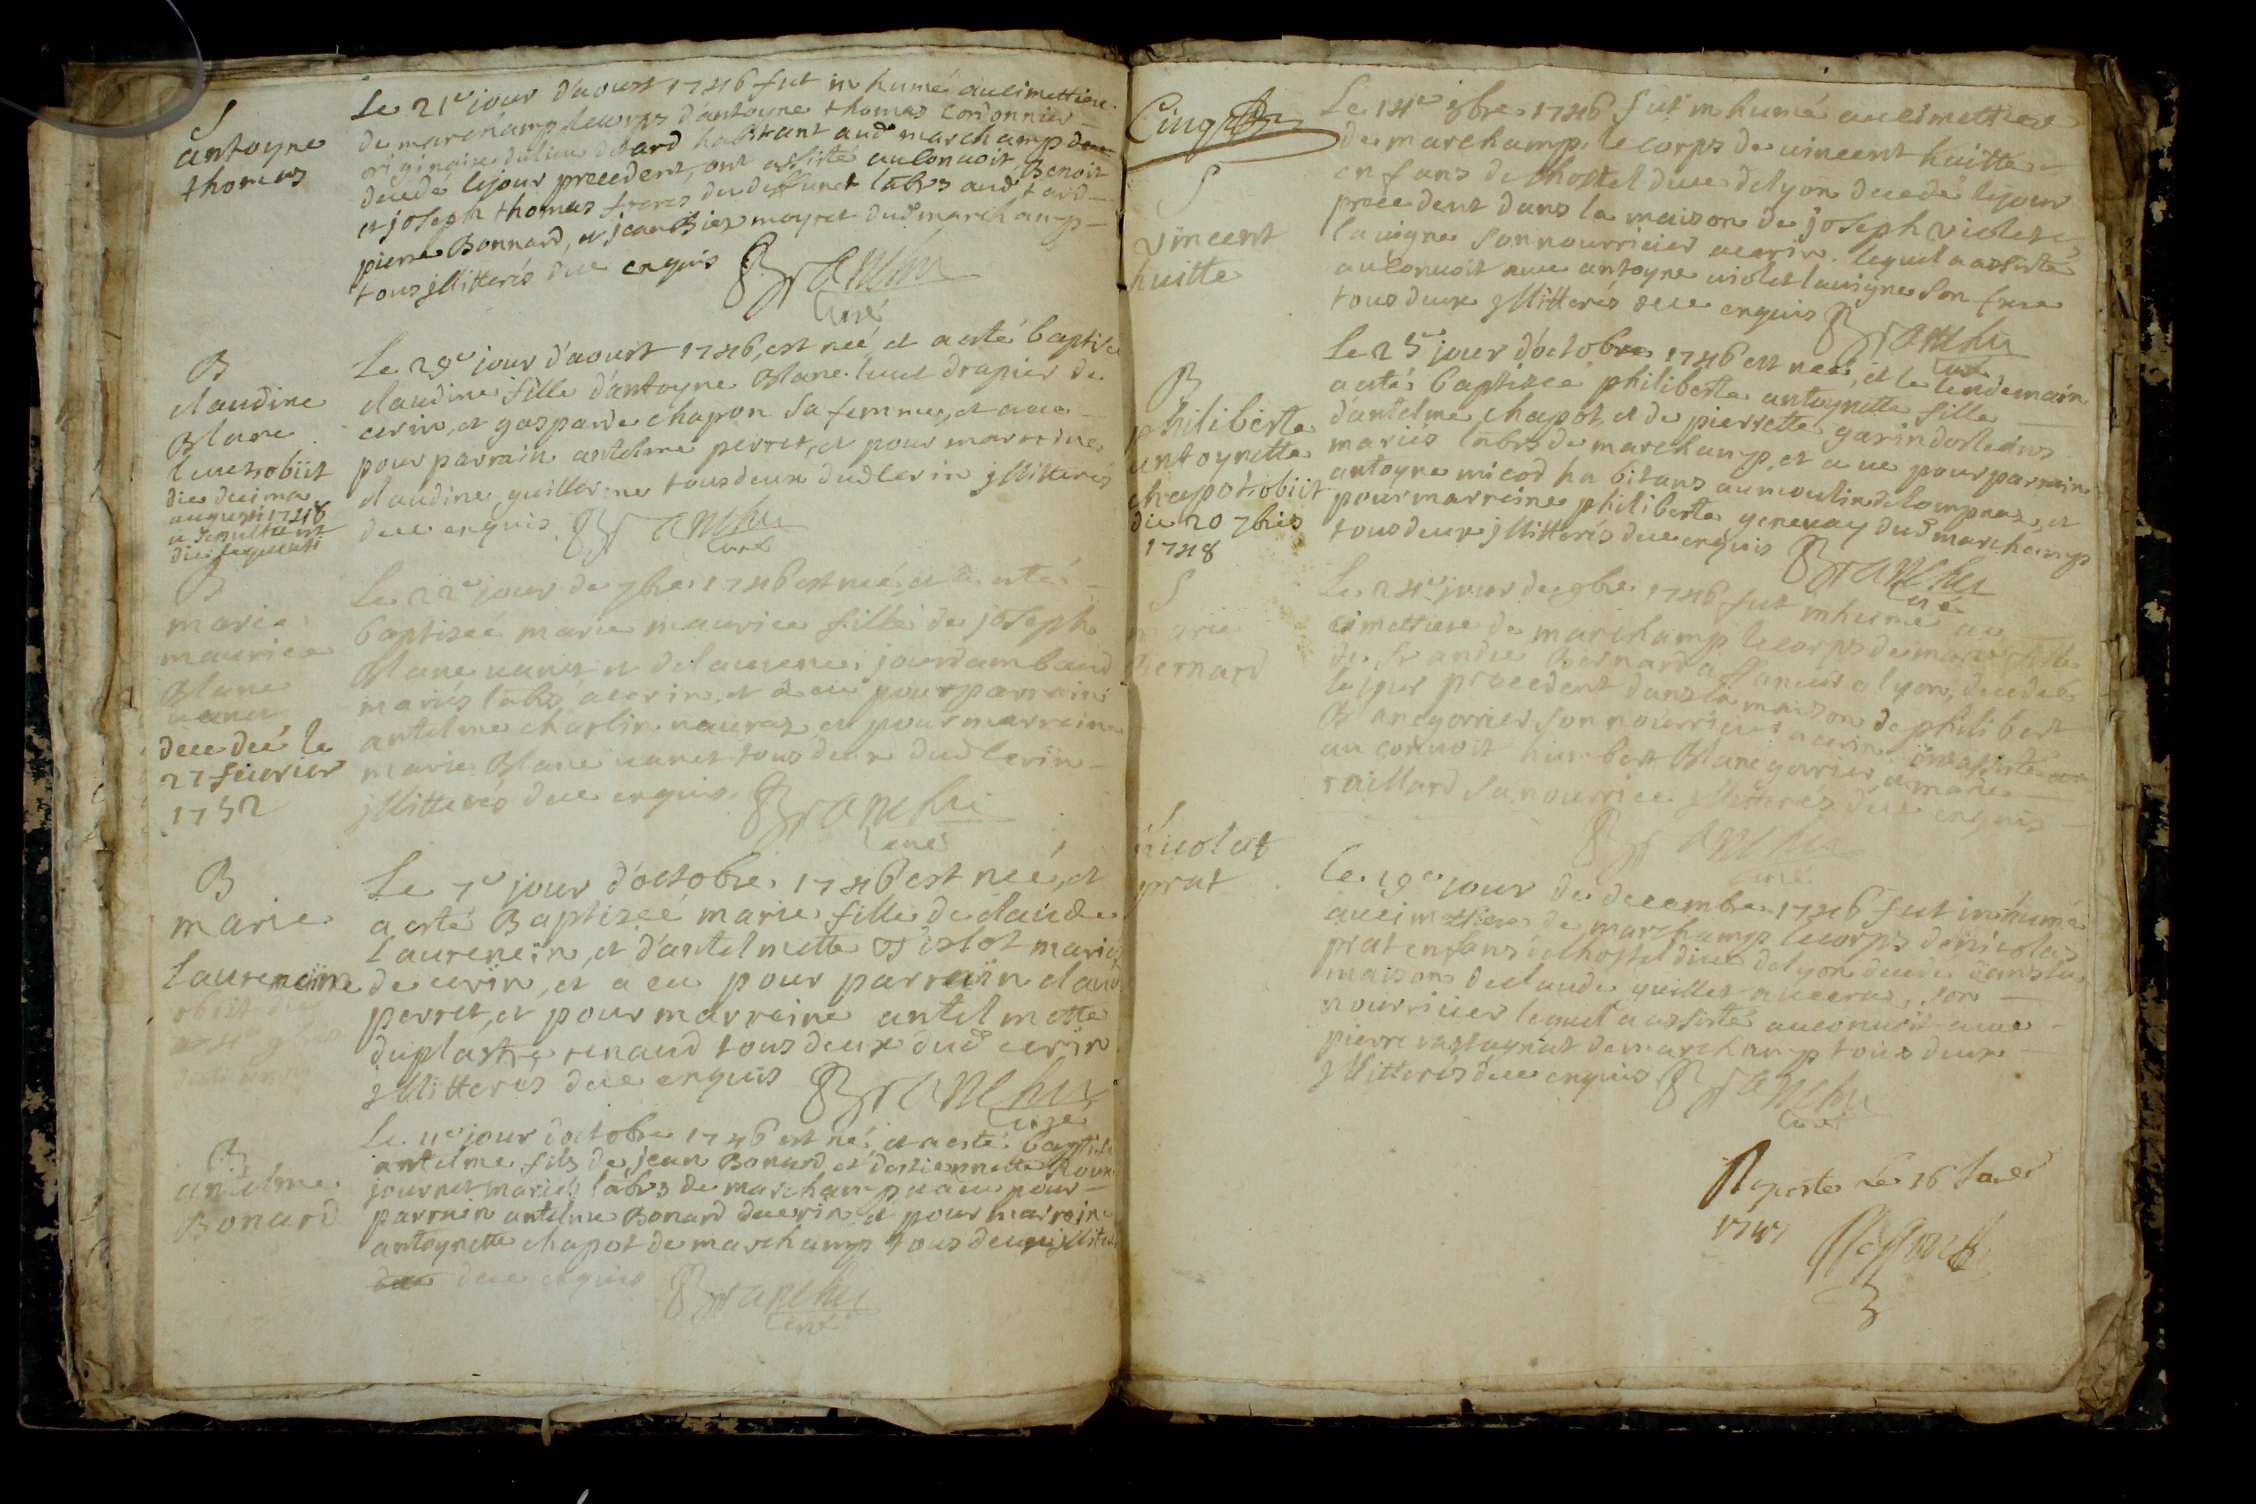 S
antoyne
thomas
Le 21e jour d'aoust 1746 fut inhumé au cimettiere
de marchamp le corps d'antoyne thomas cordonnier
originaire du lieu habitant aud marchamp
decedé le jour precedent, ont assisté au convoit Benoit
et joseph thomas freres du deffunct labrs aud
pierre Bonnard, et jean moyret dud marchamp
tous jllitterés de ce enquis Branchu
Curé
B
claudine
Blanc
luiset obiit
die decima
augusti 1748
die sequenti
Le 29e jour d'aoust 1746, est neé et a esté baptisé
claudine fille d'antoyne Blanc luiset drapier de
cerin, et gasparde chapon sa femme, et a eu
pour parrain antelme perret, et pour marraine
claudine guillerme tous deux dud cerin jllitterés
de ce enquis Branchu
curé
B
marie
mauricé
Blanc
vanet
decedeé le
27 fevrier
1752
Le 22e jour de 7bre 1746 est neé, et a esté
baptizeé marie maurice fille de joseph
Blanc vanet et de laurence jourdam
mariés labrs a cerin, et a eu pour parrain
antelme charlin et pour marraine
marie Blanc vanet tous deux dud cerin
jllitterés de ce enquis Branchu
curé
B
marie
Laurencin
obiit die
Le 7e jour d'octobre 1746 est neé, et
a esté Baptizeé marie fille de claude
Laurencin, et d'antelmette mariés
de cerin, et a eu pour parrain claude
perret, et pour marraine antelmette
duplastre renaud tous deux dud cerin
jllitterés de ce enquis Branchu
Curé
B
antelme
Bonard
Le 11e jour d'octobre 1746 est né, et a esté baptisé
antelme fils de jean Bonard et d'estiennette
journet mariés labrs de marchamp, et a eu pour
parrain antelme Bonard de cerin, et pour marraine
antoynette chapot de marchamp tous deux jllitterés
de ce enquis Branchu
curé
Cinq
S
vincent
huitte
Le 14e 8bre 1746 fut inhumé au cimettiere
de marchamp le corps de vincent huitte
enfans de lhostel dieu de lyon decedé le jour
precedent dans la maison de joseph violet
lavigne son nourricier a cerin. lequel a assisté
au convoit avec antoyne violet lavigne son frere
tous deux jllitterés de ce enquis Branchu
Curé
B
philiberte
antoynette
chapot obiit
die 20 7bris
1748
Le 25e jour d'octobre 1746 est neé, et le lendemain
a esté baptizeé philiberte antoynette fille
d'antelme chapot, et de pierrette garin
mariés labrs de marchamp, et a eu pour parrain
antoyne micod habitans au moulin de lompnas, et
pour marraine philiberte genevay dud marchamp
tous deux jllitterés de ce enquis Branchu
Curé
S
marie
Bernard
Le 24e jour de 9bre 1746 fut inhumé au
cimettiere de marchamp le corps de marie fille
de Sr andré Bernard affaneur a lyon, decedeé
le jour precedent dans la maison de philibert
Blanc gorrier son nourricier a cerin ont assisté au
au convoit humbert Blanc gorrier, et marie
raillard sa nourrice jllitterés de ce enquis
Branchu
curé
nicolas
prat
Le 19e jour de decembre 1746 fut inhumé
au cimettiere de marchamp le corps de nicolas
prat enfans de lhostel dieu de lyon decedé dans la
maison de claude guillet au cerin, son
nourricier lequel a assisté au convoit avec
pierre vastagnat de marchamp tous deux
jllitterés de ce enquis Branchu
Curé
le 16 Janer
1747